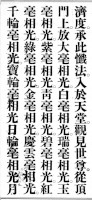 濟度承此懺法入於天堂觀見世尊從頂
門上放大毫相光白毫相光瑞毫相光玉
毫相光紫毫相光青毫相光碧毫相光紅
毫相光綠毫相光金毫相光慶雲毫相光
千輪毫相光寶輪毫相光日輪毫相光月